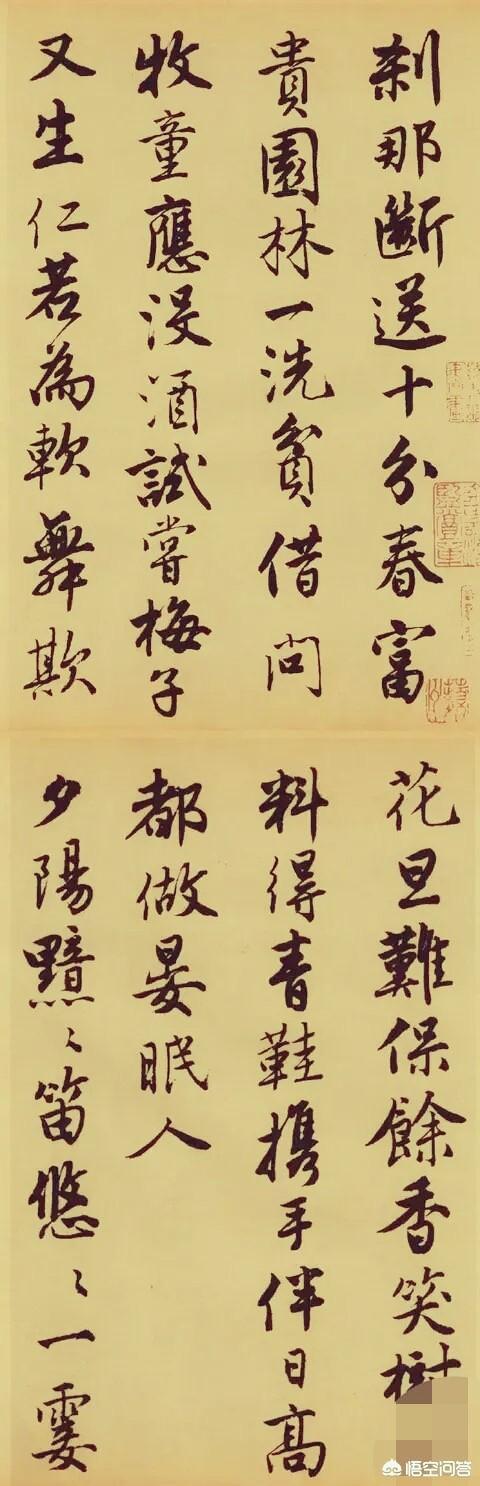 刹那斷送十分春富
貴園林一洗貧借問
牧童應沒酒試嘗梅子
又生仁若為軟舞欺
花旦難保餘香笑樹
料得青鞋攜手伴日高
都做晏眠人
夕陽黯〻笛悠〻一霎
悟空问答